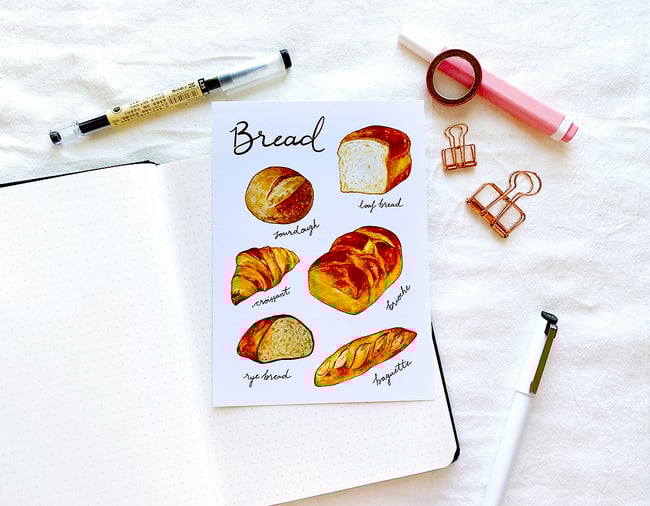 Bread
loaf bread
sourdough
croissant
brioche
rye bread
baguette